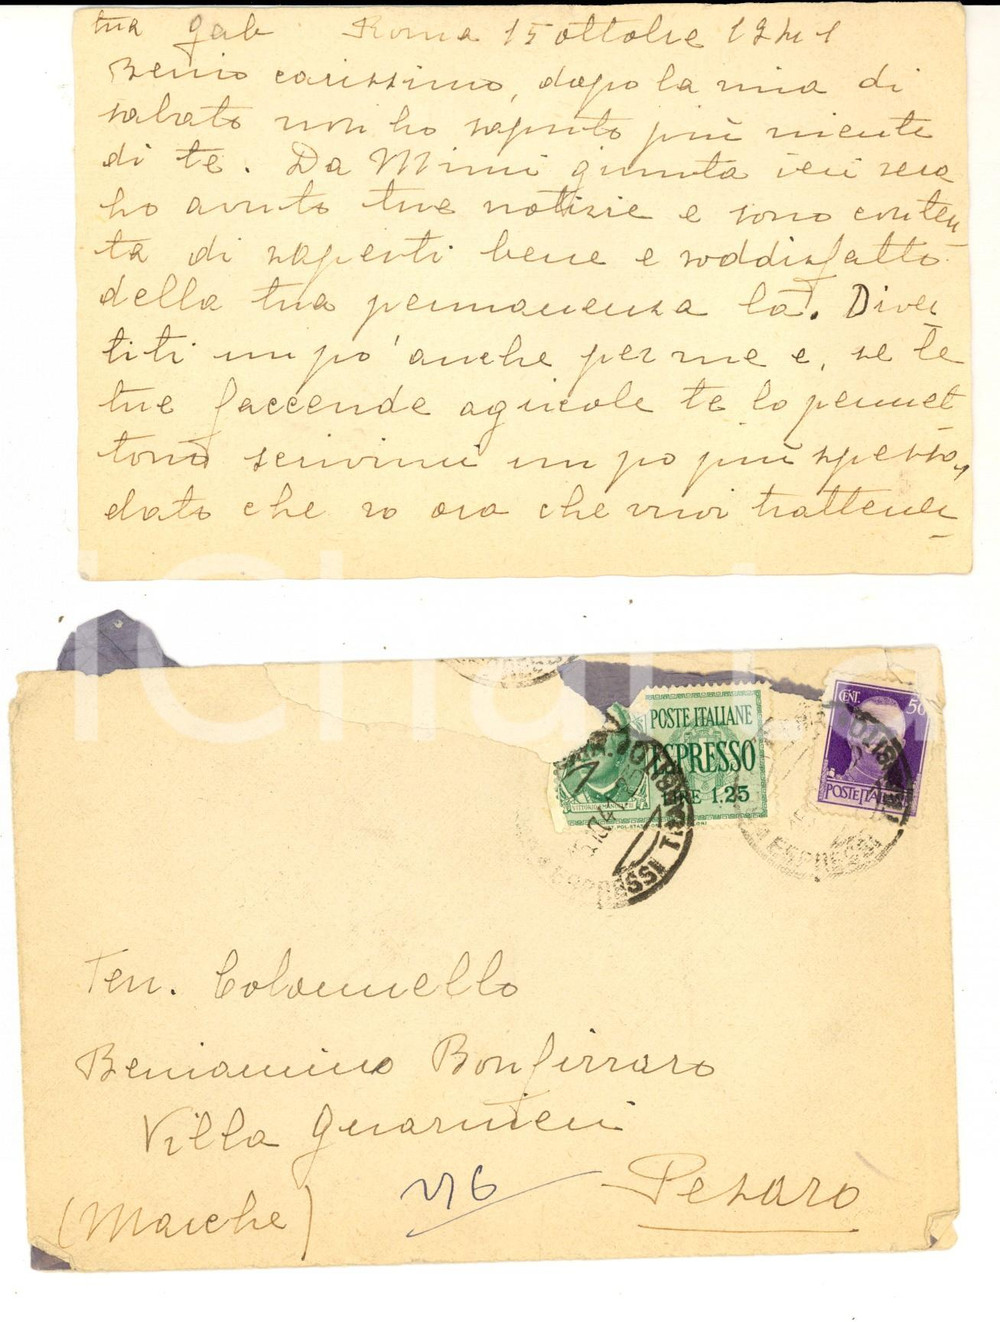 tua Gab Roma 15 ottobre 1941
Benio carissimo, dopo la mia di
sabato non ho saputo più niente
di te. Da Mimì giunta ieri sera
ho avuto tue notizie e sono conten
ta di saperti bene e soddisfatto
della tua permanenza là. Diver
titi un po' anche per me e, se le
tue faccende agricole te lo permet
tono scrivimi un po più spesso,
dato che so ora che vuoi trattener
iCharta
POSTE ITALIANE
ESPRESSO
LIRE 1.25
VITTORIO EMANUELE
CENT. 50
POSTE ITALIANE
ESPRESSI
ESPRESSI
Ten. Colonnello
Beniamino Bonfirraro
Villa Guarnieri
Pesaro
(Marche)